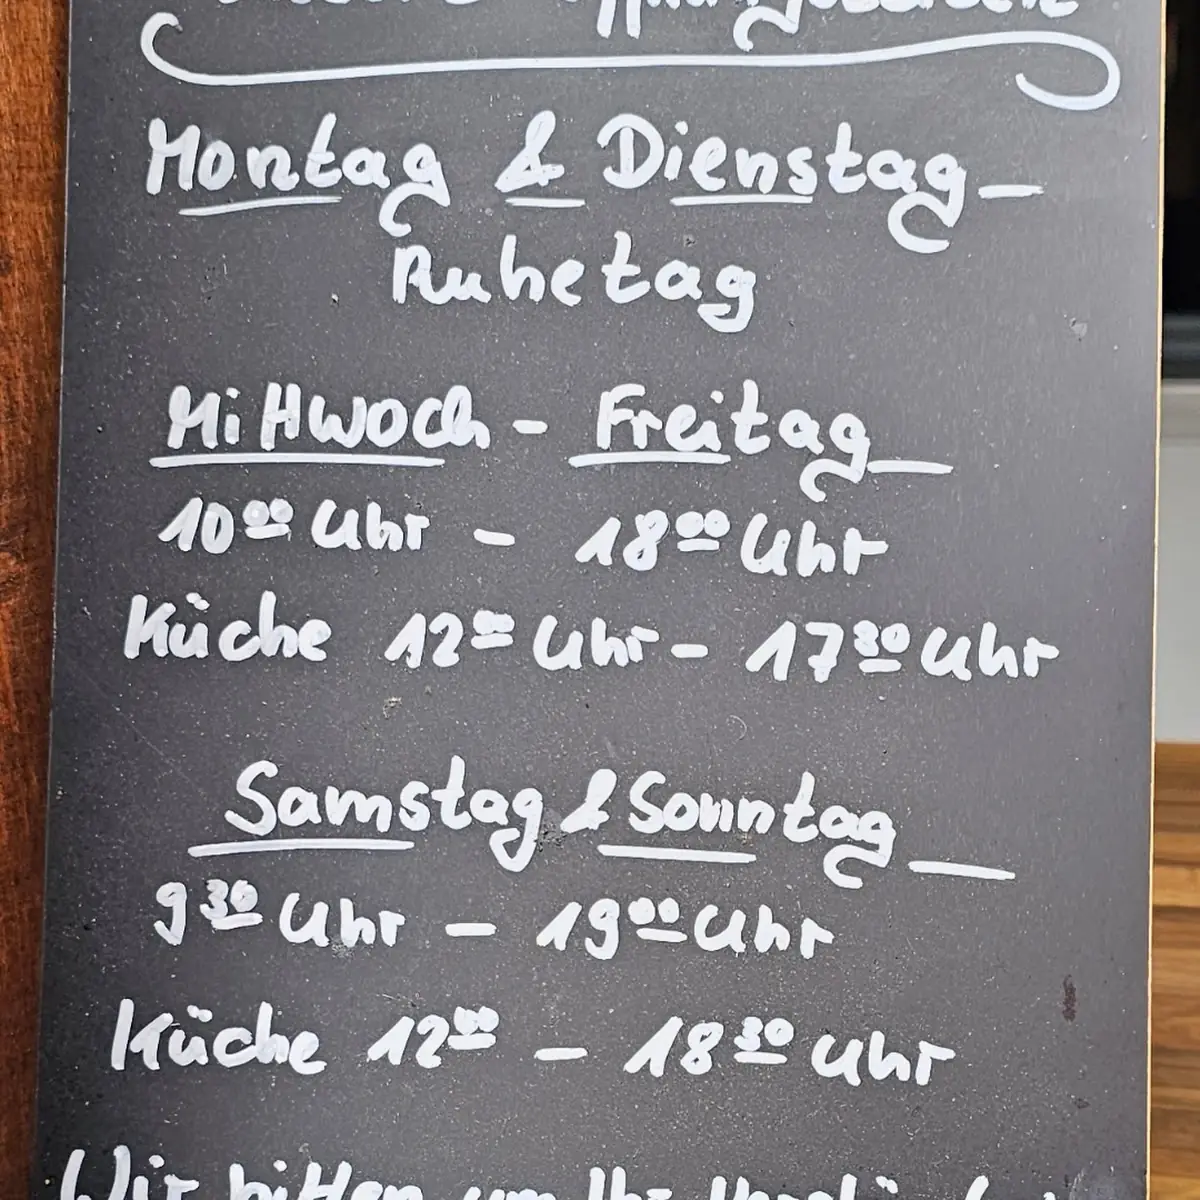 Montag & Dienstag
Ruhetag
Mittwoch - Freitag
10⁰⁰ Uhr - 18⁰⁰ Uhr
Küche 12⁰⁰ Uhr - 17³⁰ Uhr
Samstag & Sonntag
9³⁰ Uhr - 19⁰⁰ Uhr
Küche 12⁰⁰ - 18³⁰ Uhr
Wir bitten um Ihr